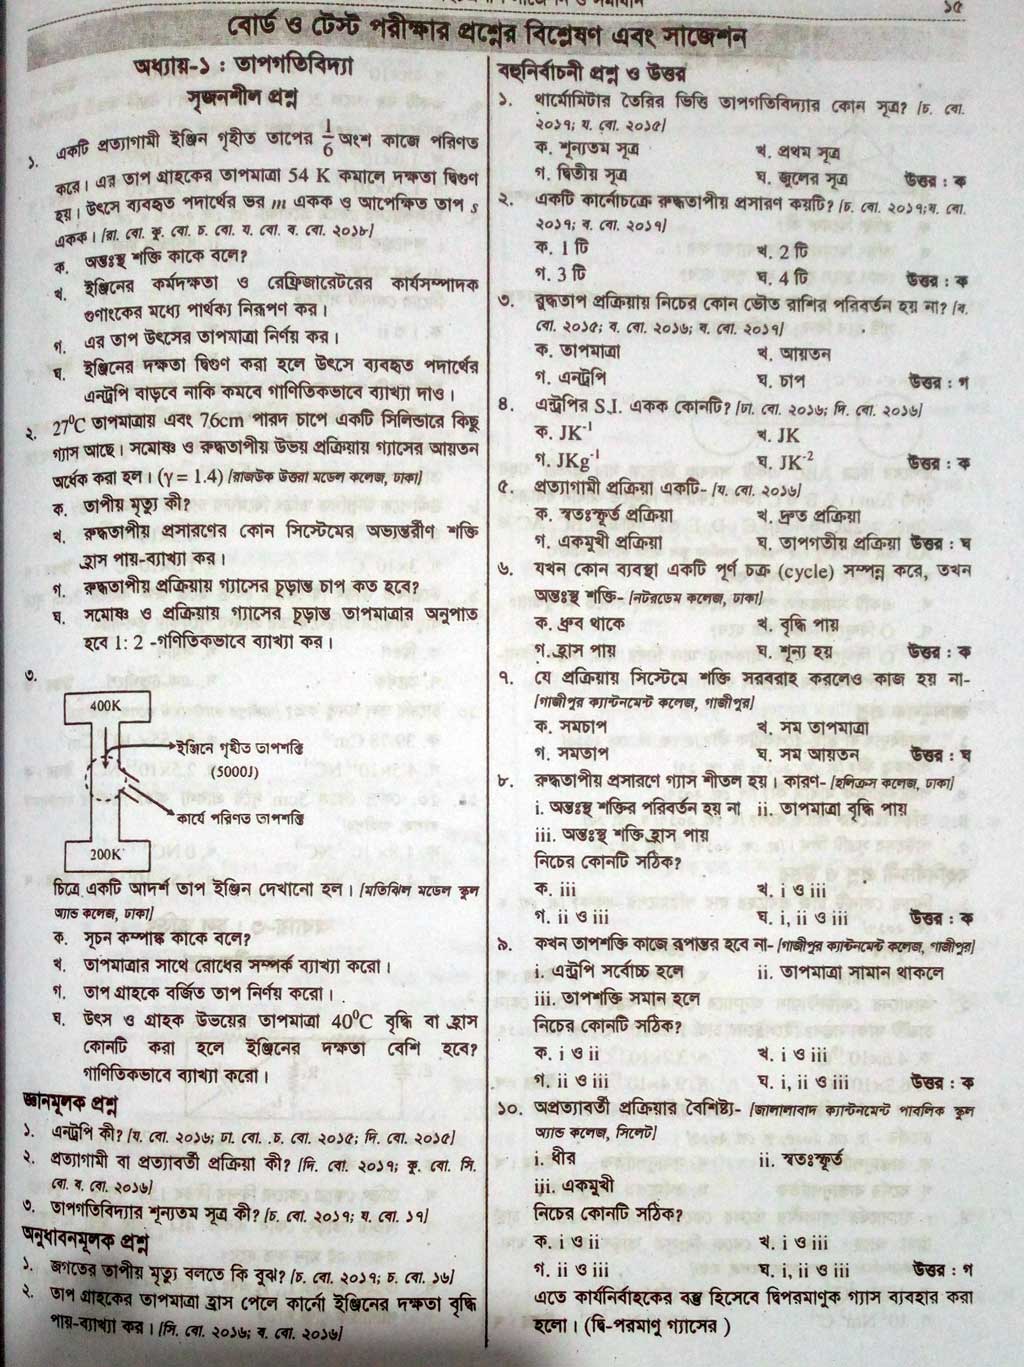 ১৫
বোর্ড ও টেস্ট পরীক্ষার প্রশ্নের বিশ্লেষণ এবং সাজেশন
অধ্যায়-১ : তাপগতিবিদ্যা
সৃজনশীল প্রশ্ন
১. একটি প্রত্যাগামী ইঞ্জিন গৃহীত তাপের 1/6 অংশ কাজে পরিণত
করে। এর তাপ গ্রাহকের তাপমাত্রা 54 K কমালে দক্ষতা দ্বিগুণ
হয়। উৎসে ব্যবহৃত পদার্থের ভর m একক ও আপেক্ষিত তাপ s
একক। [রা. বো. কু. বো. চ. বো. য. বো. ব. বো. ২০১৮]
ক. অন্তঃস্থ শক্তি কাকে বলে?
খ. ইঞ্জিনের কর্মদক্ষতা ও রেফ্রিজারেটরের কার্যসম্পাদক
গুণাংকের মধ্যে পার্থক্য নিরূপণ কর।
গ. এর তাপ উৎসের তাপমাত্রা নির্ণয় কর।
ঘ. ইঞ্জিনের দক্ষতা দ্বিগুণ করা হলে উৎসে ব্যবহৃত পদার্থের
এনট্রপি বাড়বে নাকি কমবে গাণিতিকভাবে ব্যাখ্যা দাও।
২. 27⁰C তাপমাত্রায় এবং 76cm পারদ চাপে একটি সিলিন্ডারে কিছু
গ্যাস আছে। সমোষ্ণ ও রুদ্ধতাপীয় উভয় প্রক্রিয়ায় গ্যাসের আয়তন
অর্ধেক করা হল। (γ = 1.4) [রাজউক উত্তরা মডেল কলেজ, ঢাকা]
ক. তাপীয় মৃত্যু কী?
খ. রুদ্ধতাপীয় প্রসারণের কোন সিস্টেমের অভ্যন্তরীণ শক্তি
হ্রাস পায়-ব্যাখ্যা কর।
গ. রুদ্ধতাপীয় প্রক্রিয়ায় গ্যাসের চূড়ান্ত চাপ কত হবে?
ঘ. সমোষ্ণ ও প্রক্রিয়ায় গ্যাসের চূড়ান্ত তাপমাত্রার অনুপাত
হবে 1: 2 -গণিতিকভাবে ব্যাখ্যা কর।
৩.
400K
ইঞ্জিনে গৃহীত তাপশক্তি
(5000J)
কার্যে পরিণত তাপশক্তি
200K
চিত্রে একটি আদর্শ তাপ ইঞ্জিন দেখানো হল। [মতিঝিল মডেল স্কুল
অ্যান্ড কলেজ, ঢাকা]
ক. সূচন কম্পাঙ্ক কাকে বলে?
খ. তাপমাত্রার সাথে রোধের সম্পর্ক ব্যাখ্যা করো।
গ. তাপ গ্রাহকে বর্জিত তাপ নির্ণয় করো।
ঘ. উৎস ও গ্রাহক উভয়ের তাপমাত্রা 40⁰C বৃদ্ধি বা হ্রাস
কোনটি করা হলে ইঞ্জিনের দক্ষতা বেশি হবে?
গাণিতিকভাবে ব্যাখ্যা করো।
জ্ঞানমূলক প্রশ্ন
১. এনট্রপি কী? [য. বো. ২০১৬; ঢা. বো. .চ. বো. ২০১৫; দি. বো. ২০১৫]
২. প্রত্যাগামী বা প্রত্যাবর্তী প্রক্রিয়া কী? [দি. বো. ২০১৭; কু. বো. সি.
বো. ব. বো. ২০১৬]
৩. তাপগতিবিদ্যার শূন্যতম সূত্র কী? [চ. বো. ২০১৭; য. বো. ১৭]
অনুধাবনমূলক প্রশ্ন
১. জগতের তাপীয় মৃত্যু বলতে কি বুঝ? [চ. বো. ২০১৭; চ. বো. ১৬]
২. তাপ গ্রাহকের তাপমাত্রা হ্রাস পেলে কার্নো ইঞ্জিনের দক্ষতা বৃদ্ধি
পায়-ব্যাখ্যা কর। [সি. বো. ২০১৬; ব. বো. ২০১৬]
বহুনির্বাচনী প্রশ্ন ও উত্তর
১. থার্মোমিটার তৈরির ভিত্তি তাপগতিবিদ্যার কোন সূত্র? [চ. বো.
২০১৭; য. বো. ২০১৫]
ক. শূন্যতম সূত্র খ. প্রথম সূত্র
গ. দ্বিতীয় সূত্র ঘ. জুলের সূত্র উত্তর : ক
২. একটি কার্নোচক্রে রুদ্ধতাপীয় প্রসারণ কয়টি? [চ. বো. ২০১৭;য. বো.
২০১৭; ব. বো. ২০১৭]
ক. 1 টি খ. 2 টি
গ. 3 টি ঘ. 4 টি উত্তর : ক
৩. রুদ্ধতাপ প্রক্রিয়ায় নিচের কোন ভৌত রাশির পরিবর্তন হয় না? [ব.
বো. ২০১৫; ব. বো. ২০১৬; ব. বো. ২০১৭]
ক. তাপমাত্রা খ. আয়তন
গ. এনট্রপি ঘ. চাপ উত্তর : গ
৪. এন্ট্রপির S.I. একক কোনটি? [ঢা. বো. ২০১৬; দি. বো. ২০১৬]
ক. JK⁻¹ খ. JK
গ. JKg⁻¹ ঘ. JK⁻² উত্তর : ক
৫. প্রত্যাগামী প্রক্রিয়া একটি- [য. বো. ২০১৬]
ক. স্বতঃস্ফূর্ত প্রক্রিয়া খ. দ্রুত প্রক্রিয়া
গ. একমুখী প্রক্রিয়া ঘ. তাপগতীয় প্রক্রিয়া উত্তর : ঘ
৬. যখন কোন ব্যবস্থা একটি পূর্ণ চক্র (cycle) সম্পন্ন করে, তখন
অন্তঃস্থ শক্তি- [নটরডেম কলেজ, ঢাকা]
ক. ধ্রুব থাকে খ. বৃদ্ধি পায়
গ. হ্রাস পায় ঘ. শূন্য হয় উত্তর : ক
৭. যে প্রক্রিয়ায় সিস্টেমে শক্তি সরবরাহ করলেও কাজ হয় না-
[গাজীপুর ক্যান্টনমেন্ট কলেজ, গাজীপুর]
ক. সমচাপ খ. সম তাপমাত্রা
গ. সমতাপ ঘ. সম আয়তন উত্তর : ঘ
৮. রুদ্ধতাপীয় প্রসারণে গ্যাস শীতল হয়। কারণ- [হলিক্রস কলেজ, ঢাকা]
i. অন্তঃস্থ শক্তির পরিবর্তন হয় না ii. তাপমাত্রা বৃদ্ধি পায়
iii. অন্তঃস্থ শক্তি হ্রাস পায়
নিচের কোনটি সঠিক?
ক. iii খ. i ও iii
গ. ii ও iii ঘ. i, ii ও iii উত্তর : ক
৯. কখন তাপশক্তি কাজে রূপান্তর হবে না- [গাজীপুর ক্যান্টনমেন্ট কলেজ, গাজীপুর]
i. এন্ট্রপি সর্বোচ্চ হলে ii. তাপমাত্রা সামান থাকলে
iii. তাপশক্তি সমান হলে
নিচের কোনটি সঠিক?
ক. i ও ii খ. i ও iii
গ. ii ও iii ঘ. i, ii ও iii উত্তর : ক
১০. অপ্রত্যাবর্তী প্রক্রিয়ার বৈশিষ্ট্য- [জালালাবাদ ক্যান্টনমেন্ট পাবলিক স্কুল
অ্যান্ড কলেজ, সিলেট]
i. ধীর ii. স্বতঃস্ফূর্ত
iii. একমুখী
নিচের কোনটি সঠিক?
ক. i ও ii খ. i ও iii
গ. ii ও iii ঘ. i, ii ও iii উত্তর : গ
এতে কার্যনির্বাহকের বস্তু হিসেবে দ্বিপরমাণুক গ্যাস ব্যবহার করা
হলো। (দ্বি-পরমাণু গ্যাসের )